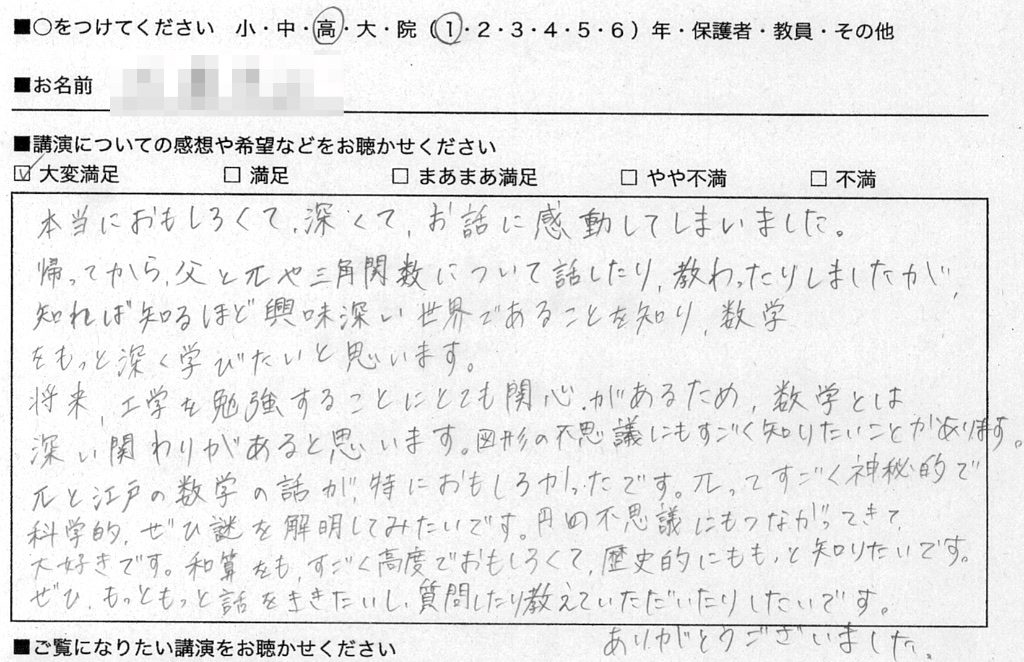 ■○をつけてください 小・中・高・大・院(1・2・3・4・5・6)年・保護者・教員・その他
■お名前
■講演についての感想や希望などをお聴かせください
☑ 大変満足 □ 満足 □ まあまあ満足 □ やや不満 □ 不満
本当におもしろくて、深くて、お話に感動してしまいました。
帰ってから、父とπや三角関数について話したり、教わったりしましたが、
知れば知るほど興味深い世界であることを知り、数学
をもっと深く学びたいと思います。
将来、工学を勉強することにとても関心があるため、数学とは
深い関わりがあると思います。図形の不思議にもすごく知りたいことがあります。
πと江戸の数学の話が、特におもしろかったです。πってすごく神秘的で
科学的、ぜひ謎を解明してみたいです。円の不思議にもつながってきて、
大好きです。和算をも、すごく高度でおもしろくて、歴史的にももっと知りたいです。
ぜひ、もっともっと話をききたいし、質問したり教えていただいたりしたいです。
ありがとうございました。
■ご覧になりたい講演をお聴かせください